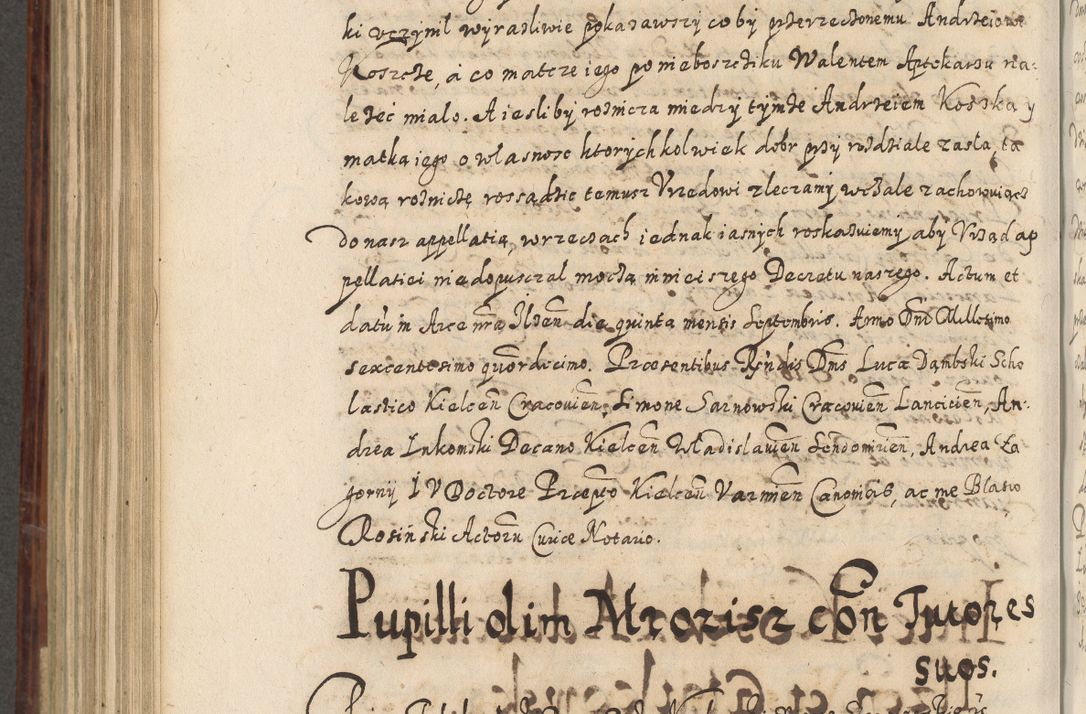 ki uczynil wyrazliwie pokazawszy coby przerzeczonemu Andrzeiowi
Koszcze, á co matcze iego po nieboszcziku Walentem Aptekarzu na-
lezéc mialo. A iesliby roznicza miedzy tymze Andrzeiem Koszka y
matka iego o wlasnosc ktorychkolwiek dobr przy rozdziale zasła, ta
kową roznicżę rossądzic temusz Vrzedowi zleczamy, wczale zachowuiącz
do nasz appellatią, w rzeczach iednak iasnych roskazuiemy, aby Vrząd ap
pellatiei niedopusczal moczą ninieiszego Decretu naszego. Actum et
datũ in Arce nrã Ilzen die quinta mensis Septembris. Anno Dni Millesimo
sexcentesimo quordecimo. Præsentibus Rndis Dnis Luca Dąmbski Scho
lastico Kielcen Cracovien, Simone Sarnowski Cracovien Lancicien, An-
drea Lukomski Decano Kielcen Władislavien Sendomirien, Andrea Za
gorny I V Doctore Præpto Kielcen Varmien Canonicis, ac me Blasio
Rosiński Actorũ Curiæ Notario.
Pupilli olim Mrozisz con Tutores
suos.